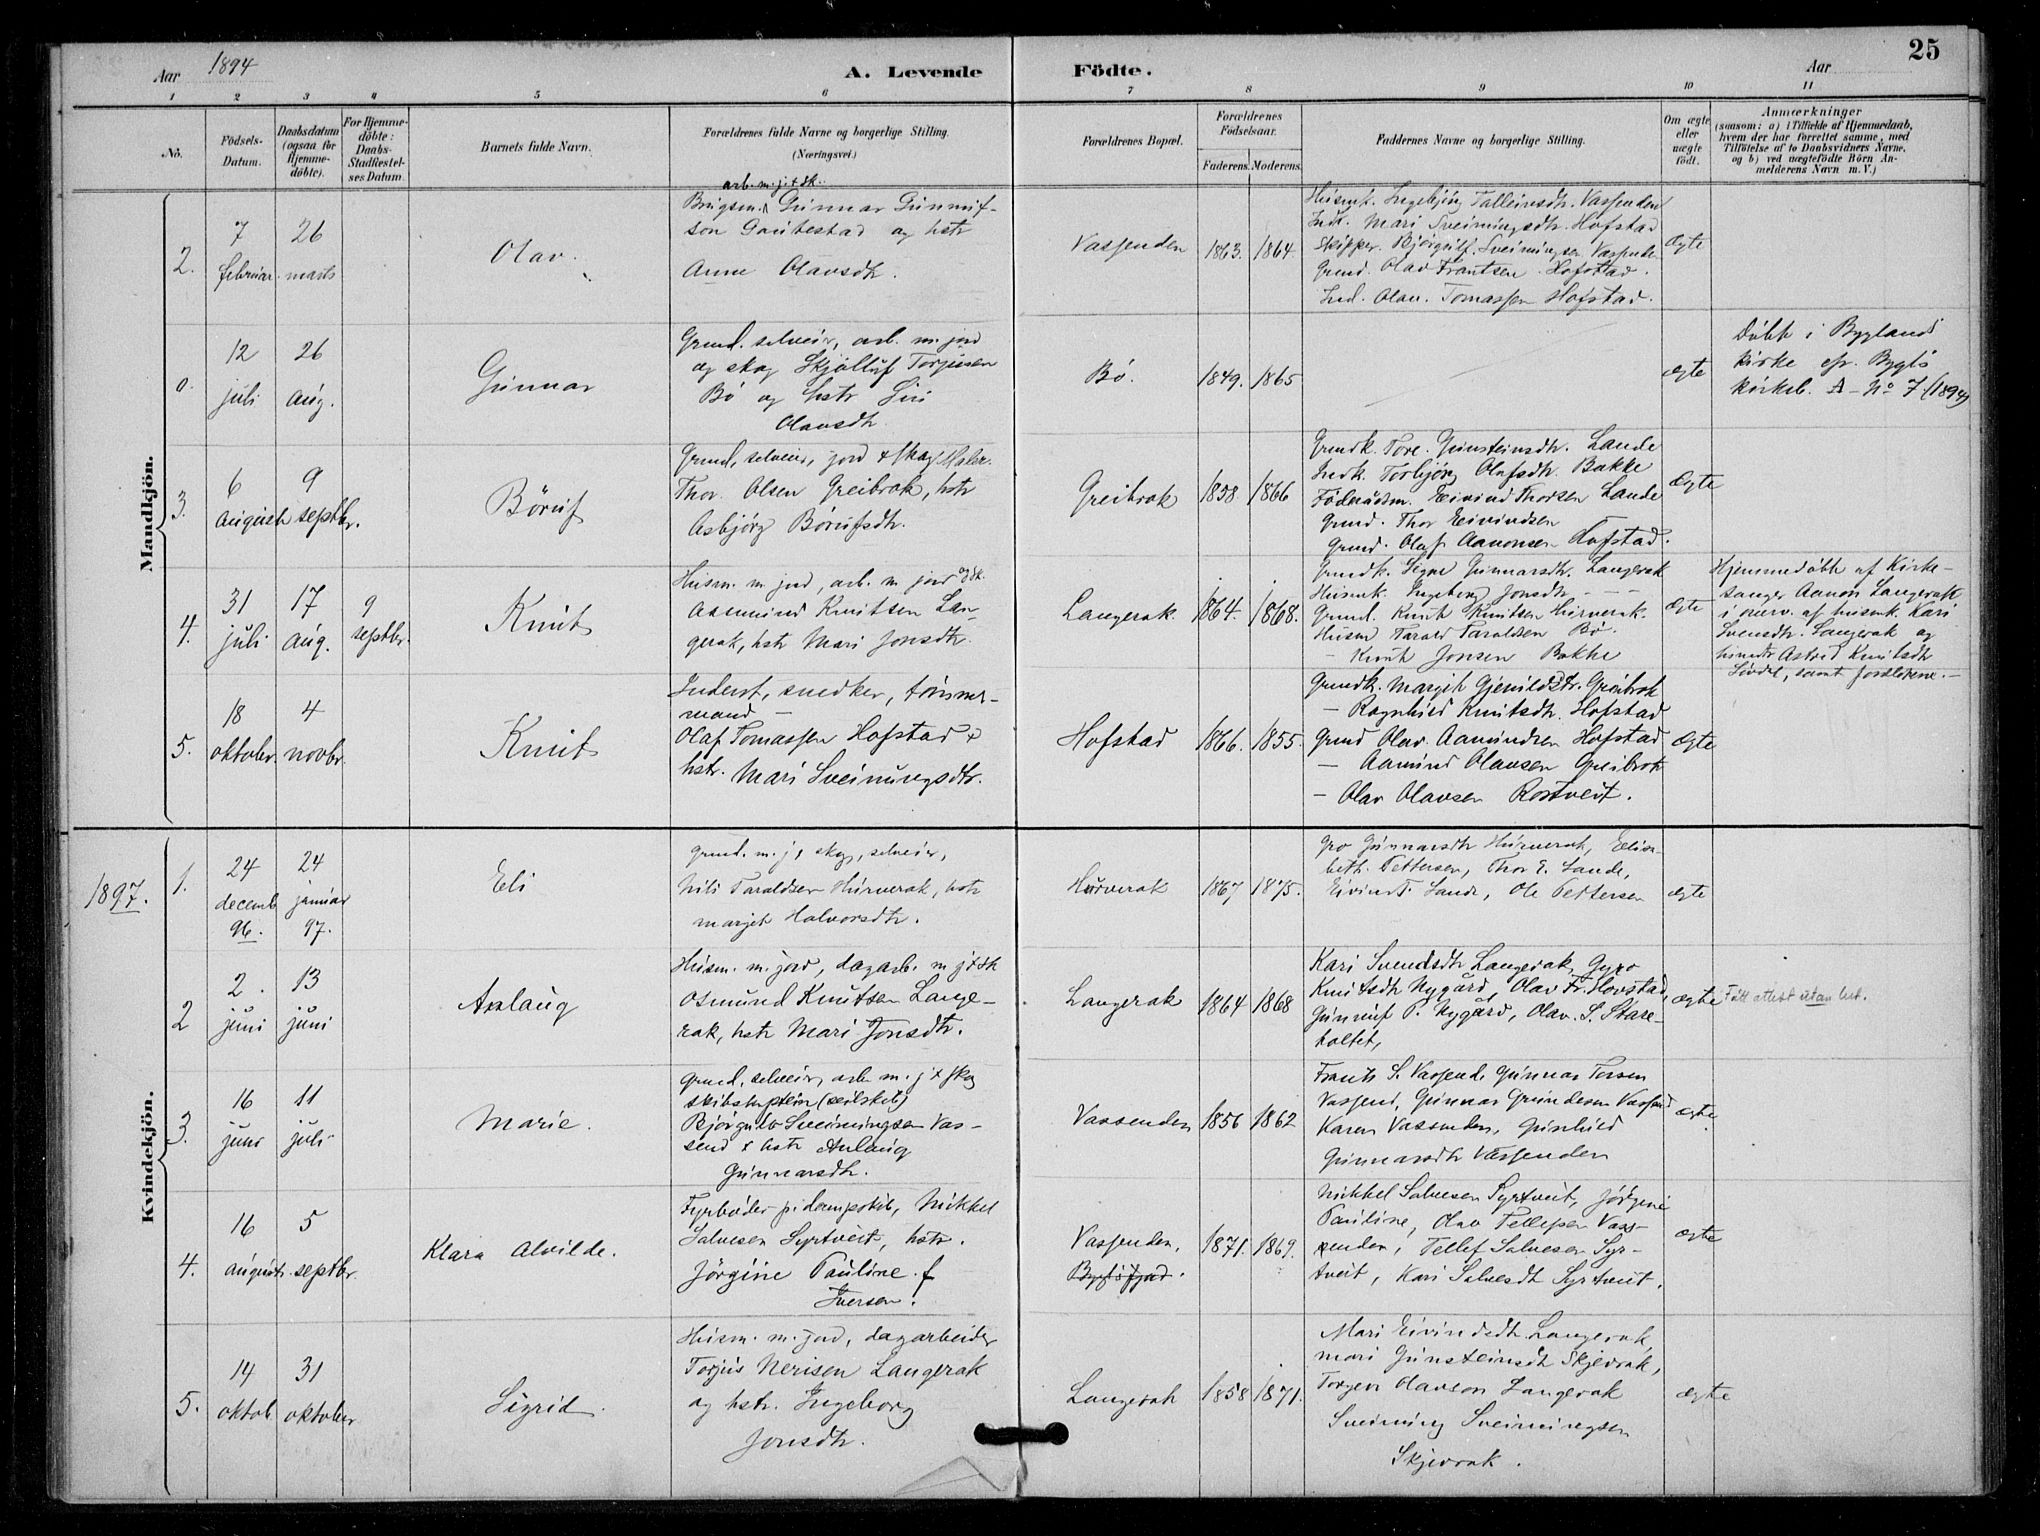 25
Aar 1894
A. Levende Födte.
Aar
1 2 3 4 5 6 7 8 9 10 11
No.
Födsels-Datum.
Daabsdatum (ogsaa for Hjemmedöbte).
For Hjemmedöbte: Daabs-Stadfæstelses Datum.
Barnets fulde Navn.
Forældrenes fulde Navne og borgerlige Stilling.
(Næringsvei.)
Forældrenes Bopæl.
Forældrenes Födselsaar.
Faderens. Moderens.
Faddernes Navne og borgerlige Stilling.
Om ægte eller uægte födt.
Anmærkninger
(saasom: a) i Tilfælde af Hjemmedaab,
hvem der har forrettet samme, med
Tilföielse af to Daabsvidners Navne,
og b) ved uægtefödte Börn An-
melderens Navn m. V.)
Mandkjön.
2.
7 februar.
26 marts
Olav.
arb. m. j. + sk.
Brugsm. Gunnar Gunnuf-
son Gautestad og hstr
Anne Olavsdtr.
Vassenden
1863. 1864.
Husmk. Ingebjörg Talleivsdtr. Vassenden
Indk. Mari Sveinungsdtr. Hofstad
Skipper. Bjorgulf Sveinungsen Vassenden
Grmd. Olav Frantsen Hofstad.
Ind. Olav Tomassen Hofstad.
Ægte
0.
12 juli
26 aug.
Gunnar
Grmd. selveier, arb. m. jord
og skog Skjølluf Torjusen
Bö og hstr Siri
Olavsdtr.
Bö.
1849. 1865
ægte
Döbt i Byglands
kirke efr. Bygls
kirkeb. A - No 7 (1894)
3.
6 august
9 septbr.
Böruf
Grmd, selveier, jord + skog Maler.
Thor Olsen Greibrok, hstr
Asbjörg Börufsdtr.
Greibrok
1858. 1866
Grmdk. Tore Gunsteinsdtr. Lande
Indk. Torbjörg Olafsdtr. Bakke
Föderaadsm. Eivind Thorsen Lande
Grmd. Thor Eivindsen
Grmd. Olaf Aanonsen Hofstad.
Ægte
4.
31 juli
17 aug.
9 septbr.
Knut
Husm. m. jord, arb. m. jord og sk.
Aasmund Knutsen Lan-
gerak, hstr Mari Jonsdtr.
Langerak.
1864. 1868.
Grmdk. Signe Gunnarsdtr. Langerak
Husmk. Ingeborg Jonsdtr — — —
Grmd. Knut Knutsen Hurverak.
Husm Tarald Taraldsen Bö.
— Knut Jonsen Bakke
Ægte
Hjemmedöbt af Kirke-
sanger Aanon Langerak
i overv. af husmk. Kari
Svensdtr. Langerak og
Astrid Knutsdtr
samt forældrene. —
5.
18 oktober.
4 novbr.
Knut
Inderst, snedker, tömmer-
mand —
Olaf Tomassen Hofstad +
hstr. Mari Sveinungsdtr.
Hofstad
1866. 1855.
Grmdk. Margit Gjeruldsdtr. Greibrok
— Ragnhild Knutsdtr. Hofstad
Grmd Olav Aamundsen Hofstad
— Aamund Olavsen Greibrok
— Olav Olavsen Rostveit.
Ægte
1897.
Kvindekjön.
1.
24 decemb 96.
24 januar 97.
Eli
Grmd. m. j, skog, selveier,
Nils Taraldsen Hurverak, hstr
Margit Halvorsdtr.
Hurverak
1867 1875.
Gro Gunnarsdtr Hurverak, Elisa-
beth Pettersen, Thor E. Lande,
Eivind T. Lande, Ole Pettersen
ægte
2
2. juni
13 juni
Aslaug
Husm. m. jord, dagarb. m j + sk
Osmund Knutsen Lange-
rak, hstr Mari Jonsdtr.
Langerak
1864 1868
Kari Svendsdtr Langerak, Gyro
Knutsdtr Nygård, Olav Fr. Hovstad,
Gunnuf P. Nygård, Olav S. Stare-
holtet,
ægte
Fått attest utan bet.
3.
16 juni
11 juli
Marie.
Grmd, selveier, arb m. j + skog
skibskaptein (seilskib)
Bjorgulv Sveinungsen Vas-
send + hstr Anlaug
Gunnarsdtr.
Vassenden
1856 1862
Frants S. Vassend, Gunnar Torsen
Vassend, Gunnar Gundersen Vassend
Karen Vassenden, Gunhild
Gunnarsdtr Vassenden
ægte
4.
16 august.
5 septbr.
Klara Alvilde.
Fyrböder p. dampskib, Mikkel
Salvesen Syrtveit, hstr.
Jörgine Pauline f
Iversen.
Vassenden.
Byglsfjord.
1871. 1869.
Mikkel Salvesen Syrtveit, Jörgine
Pauline, Olav Tellefsen Vass-
enden, Tellef Salvesen Syr-
tveit, Kari Salvesdtr Syrtveit.
ægte
5.
14 oktob.
31 oktober
Sigrid.
Husm. m. jord, dagarbeider
Torjus Nerisen Langerak
og hstr. Ingeborg
Jonsdtr.
Langerak
1858 1871.
Mari Eivindsdtr Langerak,
Mari Gunsteinsdtr Skjevrak,
Torgeir Olavson Langerak
Sveinung Sveinungsen
Skjevrak.
ægte